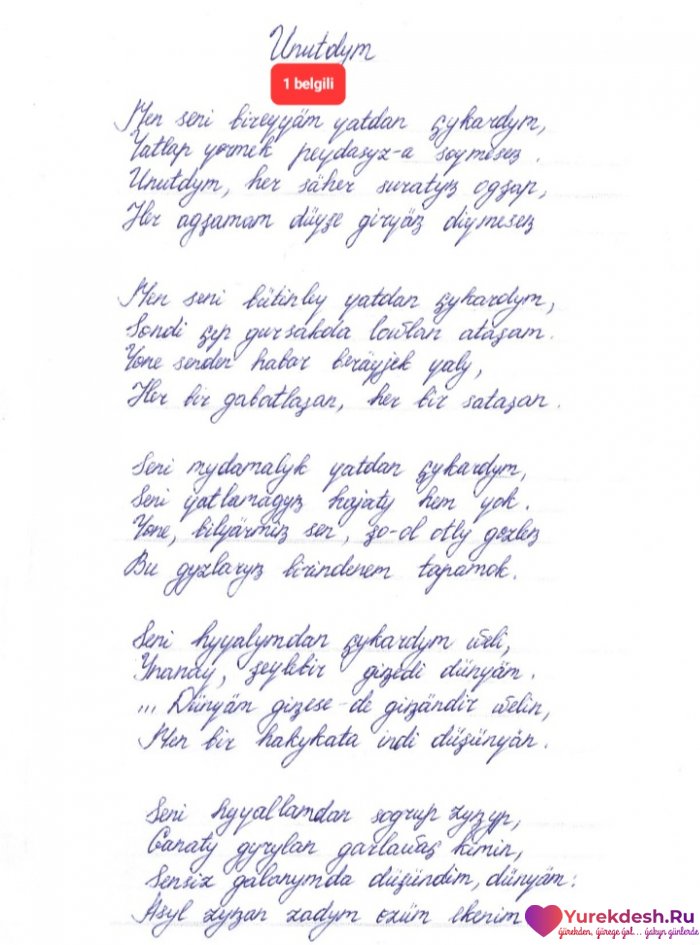 Unutdym
1 belgili
Men seni bireyyäm yatdan çykardym,
Yatlap yörmek peydasyz-a söymeseñ.
Unutdym, her säher suratyñ ogşap,
Her agşamam düyşe giryäñ diymeseñ
Men seni bütinley yatdan çykardym,
Söndi çyp gursakda lowlan ataşam.
Yöne senden habar beräyjek yaly,
Her bir gabatlaşan, her bir sataşan.
Seni mydamalyk yatdan çykardym,
Seni yatlamagyñ hajaty hem yok.
Yöne, bilyärmiñ sen, şo-ol otly gözleñ
Bu gyzlaryñ birindenem tapamok.
Seni hyyalymdan çykardym weli,
Ynanay, şeylebir giñedi dünyäm.
... Dünyäm giñese-de giñändir welin,
Men bir hakykata indi düşünyän.
Seni hyyallamdan sogrup zyñyp,
Ganaty gyrylan garlawaç kimin,
Sensiz galanymda düşündim, dünyäm:
Asyl zyñan zadym özüm ekenim
Yurekdesh.Ru
ýürekden, ýürege ýol... ýakyn günlerde